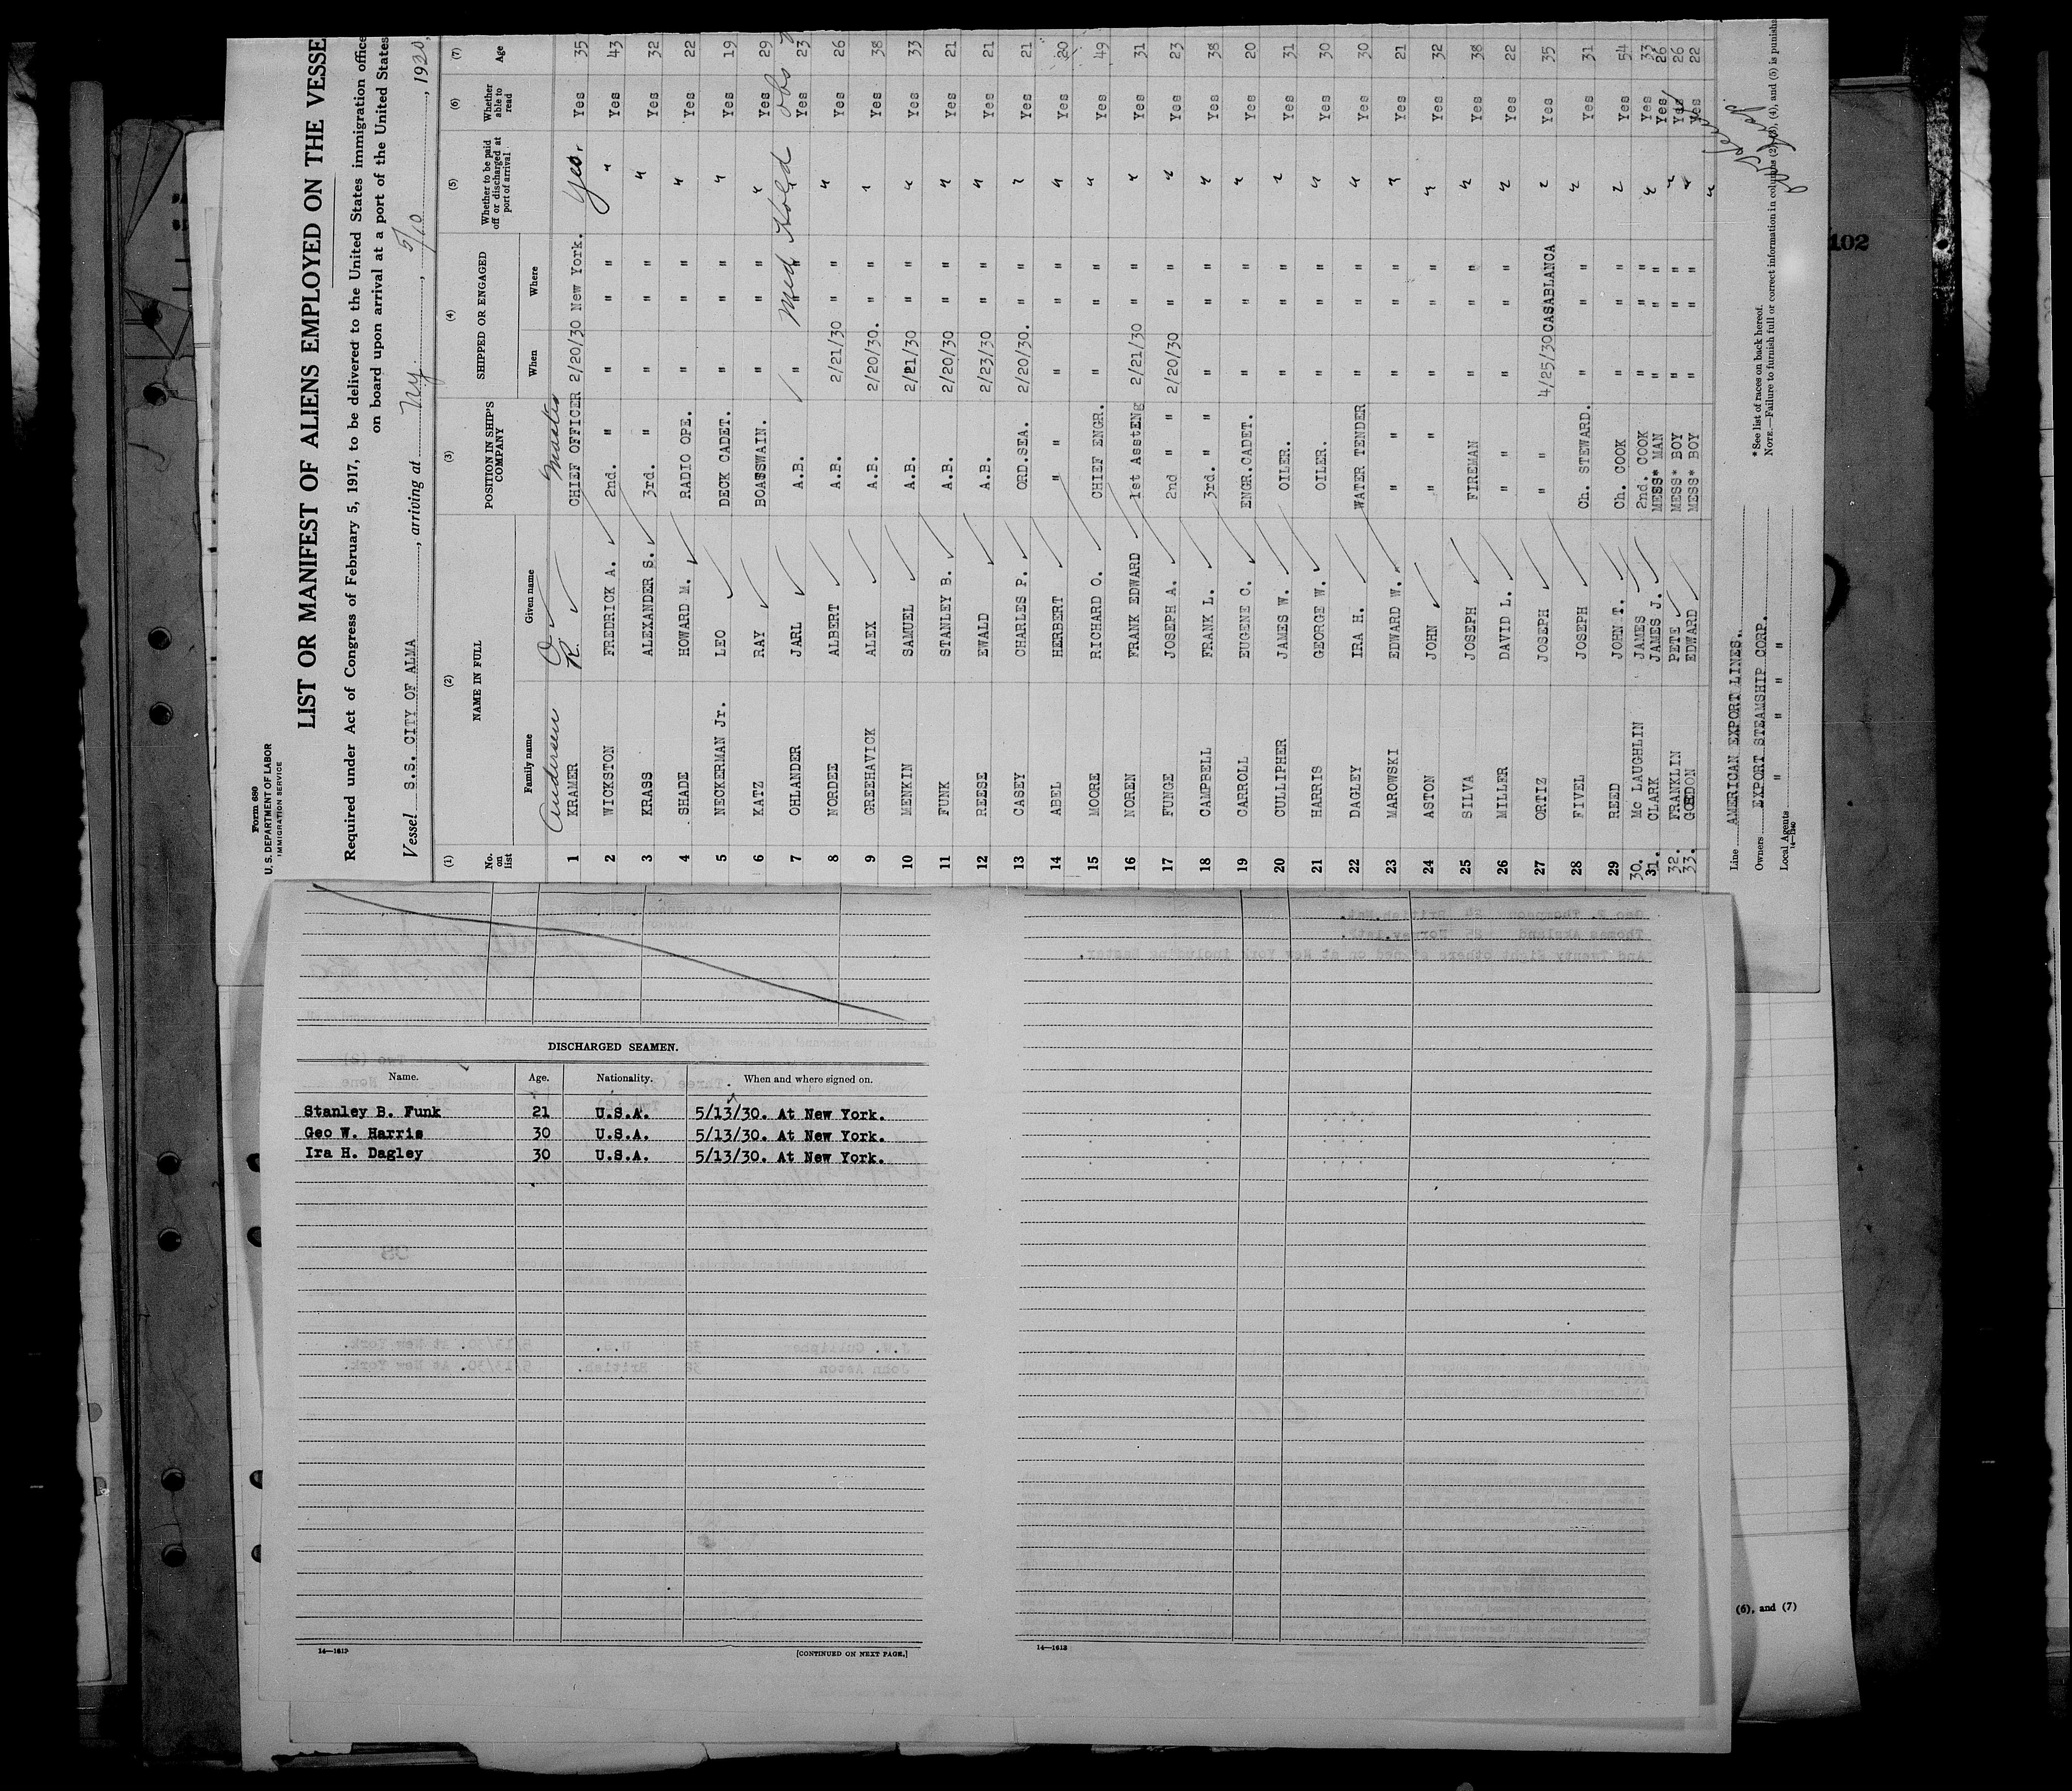 Form 680
U. S. DEPARTMENT OF LABOR
IMMIGRATION SERVICE
LIST OR MANIFEST OF ALIENS EMPLOYED ON THE VESSE
Required under Act of Congress of February 5, 1917, to be delivered to the United States immigration office
on board upon arrival at a port of the United States
Vessel S.S. CITY OF ALMA, arriving at Ny, 5/10, 1930,
(1) (2) (3) (4) (5) (6) (7)
No. on list NAME IN FULL POSITION IN SHIP'S COMPANY SHIPPED OR ENGAGED Whether to be paid off or discharged at port of arrival Whether able to read Age
Family name Given name When Where
Andersen O Master
1 KRAMER R. CHIEF OFFICER 2/20/30 New York. Yes. Yes 35
2 WICKSTON FREDRICK A. 2nd. " " " " " Yes 43
3 KRASS ALEXANDER S. 3rd. " " " " " Yes 32
4 SHADE HOWARD M. RADIO OPE. " " " " Yes 22
5 NECKERMAN Jr. LEO DECK CADET. " " " " Yes 19
6 KATZ RAY BOATSWAIN. " " " " Yes 29
7 OHLANDER JARL A.B. " Med Hold obs Yes 23
8 NORDEE ALBERT A.B. 2/21/30 " " " Yes 26
9 GREEHAVICK ALEX A.B. 2/20/30. " " " Yes 38
10 MENKIN SAMUEL A.B. 2/21/30 " " " Yes 33
11 FUNK STANLEY B. A.B. 2/20/30 " " " Yes 21
12 REESE EWALD A.B. 2/23/30 " " " Yes 21
13 CASEY CHARLES P. ORD.SEA. 2/20/30. " " " Yes 21
14 ABEL HERBERT " " " " " Yes 20
15 MOORE RICHARD O. CHIEF ENGR. " " " " Yes 49
16 NOREN FRANK EDWARD 1st AsstENg 2/21/30 " " " Yes 31
17 FUNGE JOSEPH A. 2nd " " 2/20/30 " " " Yes 23
18 CAMPBELL FRANK L. 3rd. " " " " " " Yes 38
19 CARROLL EUGENE C. ENGR.CADET. " " " " Yes 20
20 CULLIPHER JAMES W. OILER. " " " " Yes 31
21 HARRIS GEORGE W. OILER. " " " " Yes 30
22 DAGLEY IRA H. WATER TENDER " " " " Yes 30
23 MAROWSKI EDWARD W. " " " " " " Yes 21
24 ASTON JOHN " " " " " " Yes 32
25 SILVA JOSEPH FIREMAN " " " " Yes 38
26 MILLER DAVID L. " " " " " Yes 22
27 ORTIZ JOSEPH " 4/25/30 CASABLANCA " Yes 35
28 FIVEL JOSEPH Ch. STEWARD. " " " " Yes 31
29 REED JOHN T. Ch. COOK " " " " Yes 54
30. Mc LAUGHLIN JAMES 2nd. COOK " " " " Yes 33
31. CLARK JAMES J. MESS* MAN " " " " Yes 26
32. FRANKLIN PETE MESS* BOY " " " " Yes 26
33. GORDON EDWARD MESS* BOY " " " " Yes 22
Line AMERICAN EXPORT LINES.
Owners EXPORT STEAMSHIP CORP.
Local Agents " " " "
14-1240
*See list of races on back hereof.
NOTE.—Failure to furnish full or correct information in columns (2), (3), (4), and (5) is punisha
102
DISCHARGED SEAMEN.
Name. Age. Nationality. When and where signed on.
Stanley B. Funk 21 U.S.A. 5/13/30. At New York.
Geo W. Harris 30 U.S.A. 5/13/30. At New York.
Ira H. Dagley 30 U.S.A. 5/13/30. At New York.
14—1613
[CONTINUED ON NEXT PAGE.]
14—1613
(6), and (7)